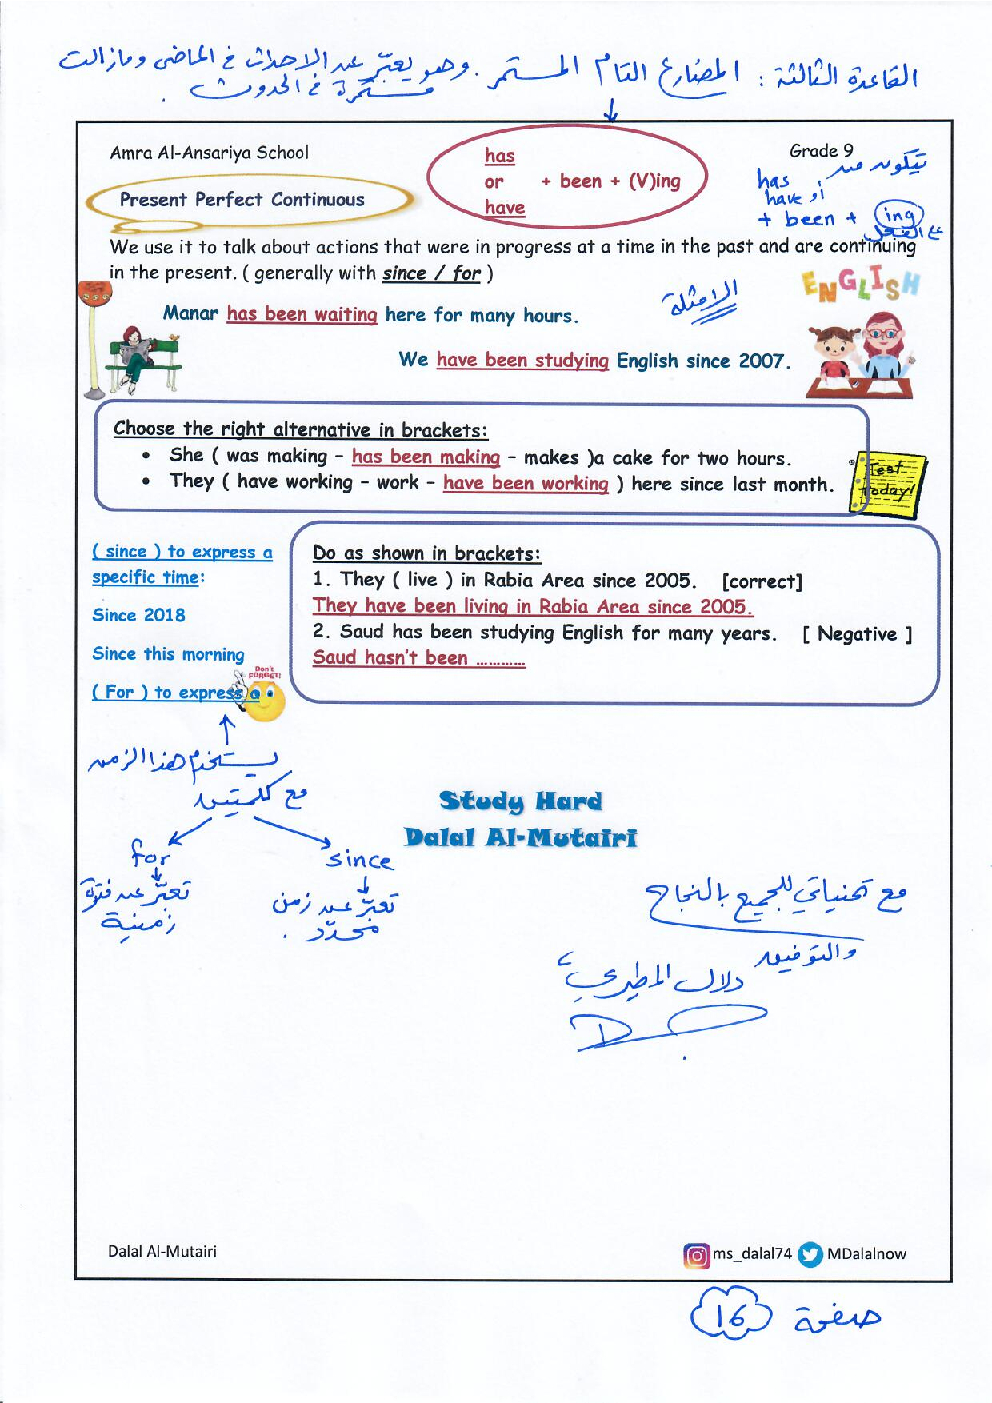 القاعدة الثالثة : المضارع التام المستمر . وهو يعبّر عن الاحداث في الماضي ومازالت
مستمرة في الحدوث .
Amra Al-Ansariya School
has
or + been + (V)ing
have
Grade 9
تتكون من
has
أو have
+ been + ing
مع الفعل
Present Perfect Continuous
We use it to talk about actions that were in progress at a time in the past and are continuing
in the present. ( generally with since / for )
ENGLISH
الامثلة
Manar has been waiting here for many hours.
We have been studying English since 2007.
Choose the right alternative in brackets:
• She ( was making – has been making – makes )a cake for two hours.
• They ( have working – work – have been working ) here since last month.
Test
today!
( since ) to express a
specific time:
Since 2018
Since this morning
( For ) to express a
Don't
FORGET!
Do as shown in brackets:
1. They ( live ) in Rabia Area since 2005. [correct]
They have been living in Rabia Area since 2005.
2. Saud has been studying English for many years. [ Negative ]
Saud hasn't been ............
يستخدم هذا الزمن
مع كلمتين
for
since
تعبّر عن فترة
زمنية
تعبّر عن زمن
محدّد .
Study Hard
Dalal Al-Mutairi
مع تمنياتي للجميع بالنجاح
والتوفيق
دلال المطيري
Dalal Al-Mutairi
ms_dalal74 MDalalnow
صفحة 16